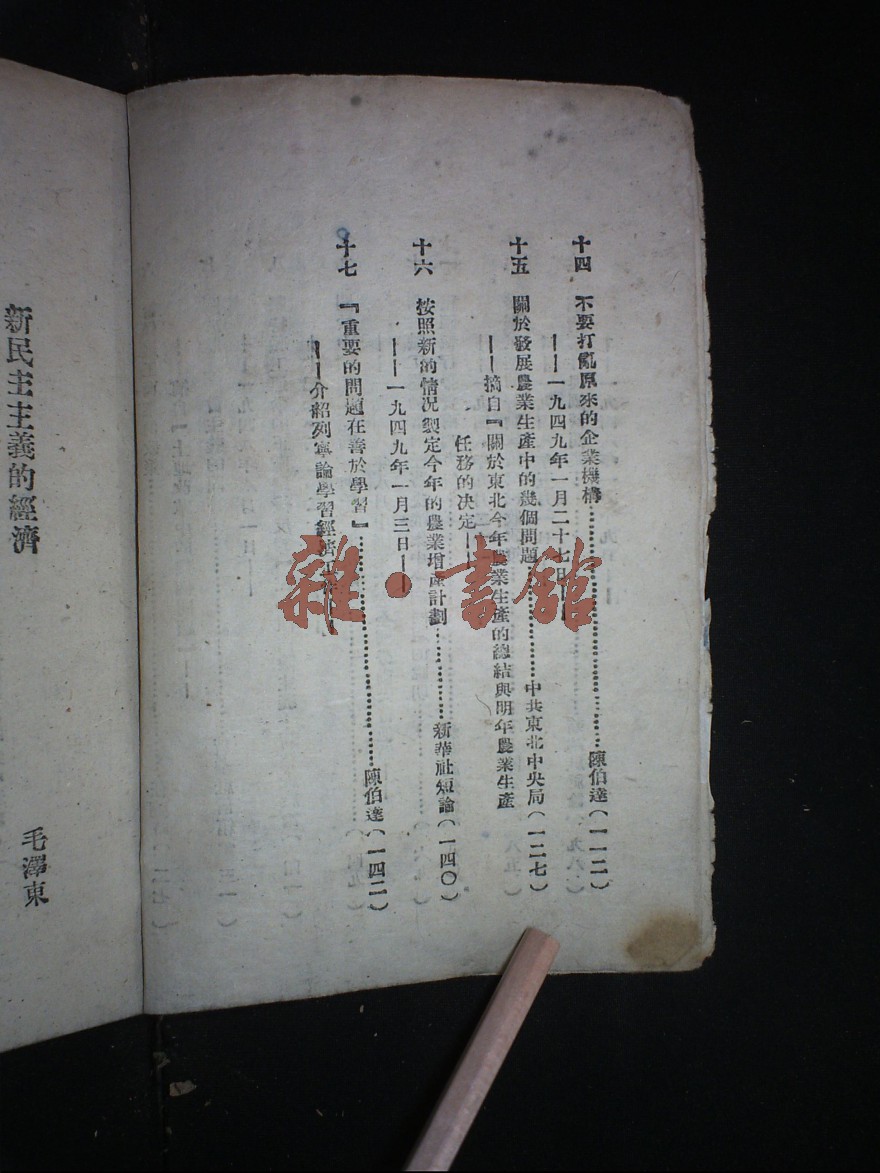 十四　不要打亂原來的企業機構……………………陳伯達（一一二）
——一九四九年一月二十七日——
十五　關於發展農業生產中的幾個問題……………中共東北中央局（一二七）
——摘自『關於東北今年農業生產的總結與明年農業生產
任務的決定——
十六　按照新的情況製定今年的農業增產計劃………新華社短論（一四〇）
——一九四九年一月三日——
十七　『重要的問題在善於學習』……………………陳伯達（一四二）
——介紹列寧論學習經濟工
新民主主義的經濟
毛澤東
雜·書館